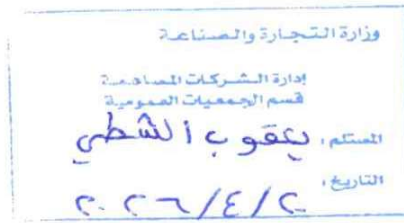 وزارة التجارة والصناعة
إدارة الشركات المساهمة
قسم الجمعيات العمومية
المستلم: يعقوب الشطي
التاريخ: ٢٠٢٦/٤/٢